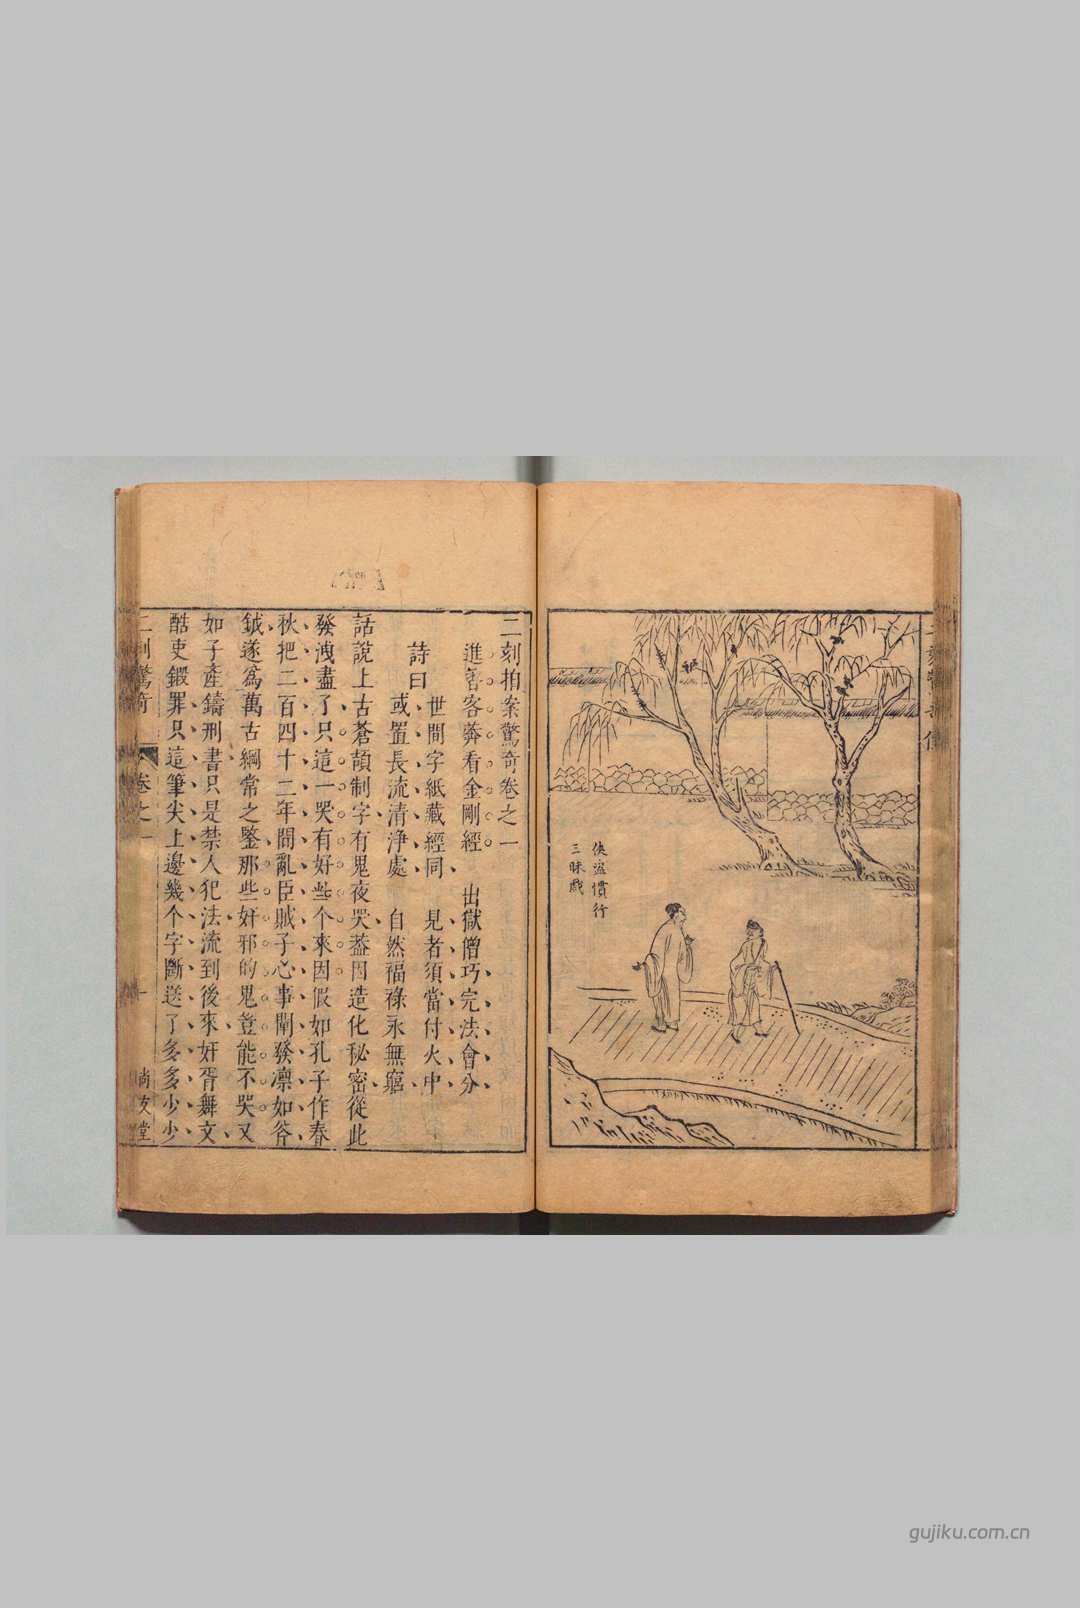 俠盜慣行
三昧戲
二刻拍案驚奇卷之一
進香客莽看金剛經　出獄僧巧完法會分
詩曰
世間字紙藏經同　見者須當付火中
或置長流清淨處　自然福祿永無窮
話說上古蒼頡制字有鬼夜哭蓋因造化秘密從此
發洩盡了只這一哭有好些个來因假如孔子作春
秋把二百四十二年間亂臣賊子心事闡發凛如斧
鉞遂爲萬古綱常之鑒那些奸邪的鬼豈能不哭又
如子產鑄刑書只是禁人犯法流到後來奸胥舞文
酷吏鍛罪只這筆尖上邊幾个字斷送了多多少少
二刻驚奇　卷之一　一　尚友堂
gujiku.com.cn